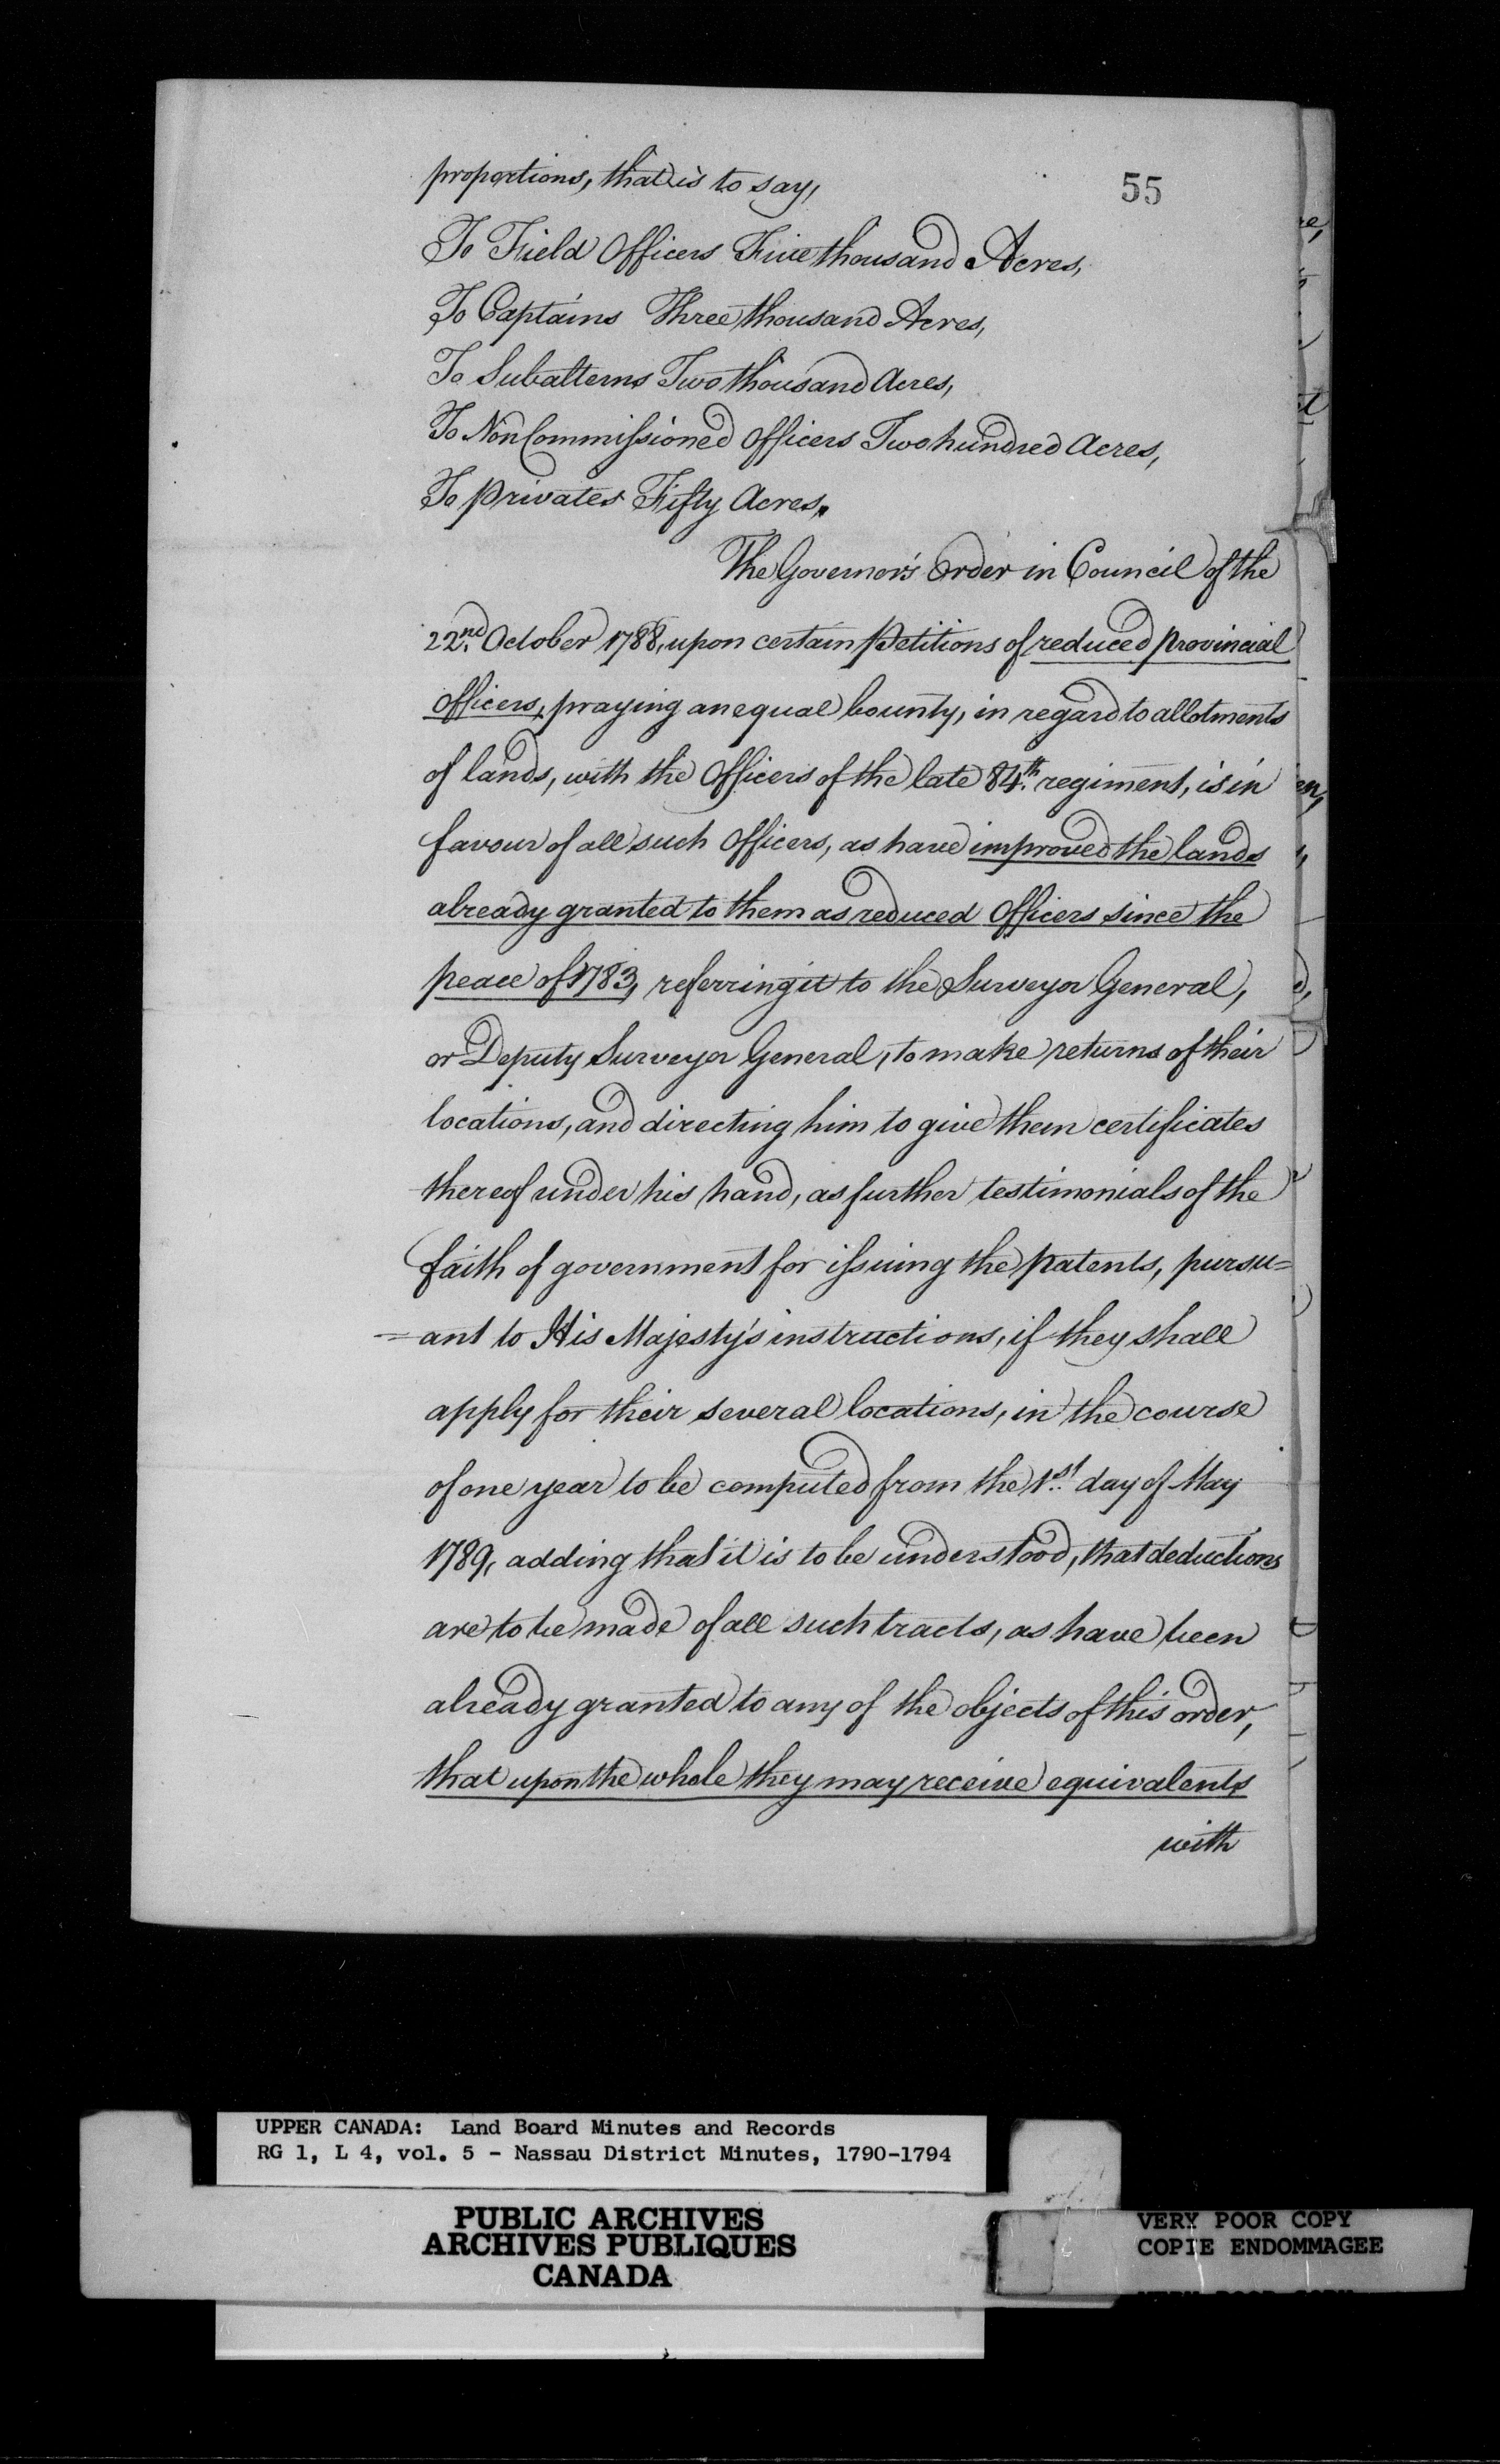 55
proportions, that is to say,
To Field Officers Five thousand Acres,
To Captains Three thousand Acres,
To Subalterns Two thousand Acres,
To Non Commissioned Officers Two hundred Acres,
To privates Fifty Acres.
The Governor's Order in Council of the
22nd October 1788, upon certain petitions of reduced provincial
Officers, praying an equal bounty, in regard to allotments
of lands, with the Officers of the late 84th regiment, is in
favour of all such Officers, as have improved the lands
already granted to them as reduced Officers since the
peace of 1783, referring it to the Surveyor General,
or Deputy Surveyor General, to make returns of their
locations, and directing him to give them certificates
thereof under his hand, as further testimonials of the
faith of government for issuing the patents, pursu=
=ant to His Majesty's instructions, if they shall
apply for their several locations, in the course
of one year to be computed from the 1st day of May
1789, adding that it is to be understood, that deductions
are to be made of all such tracts, as have been
already granted to any of the objects of this order,
that upon the whole they may receive equivalents
with
UPPER CANADA: Land Board Minutes and Records
RG 1, L 4, vol. 5 - Nassau District Minutes, 1790-1794
PUBLIC ARCHIVES
ARCHIVES PUBLIQUES
CANADA
VERY POOR COPY
COPIE ENDOMMAGEE